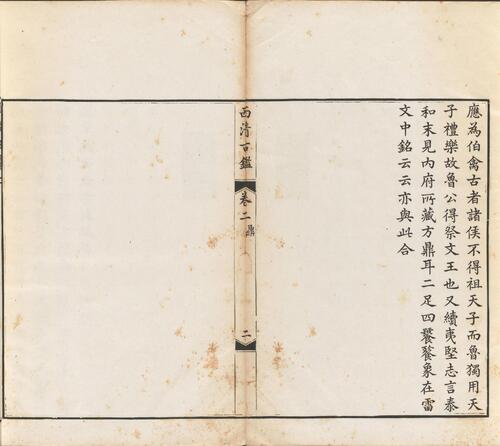 應為伯禽古者諸侯不得祖天子而魯獨用天
子禮樂故魯公得祭文王也又續夷堅志言泰
和末見內府所藏方鼎耳二足四饕餮象在雷
文中銘云云亦與此合
西清古鑑
卷二
鼎
二